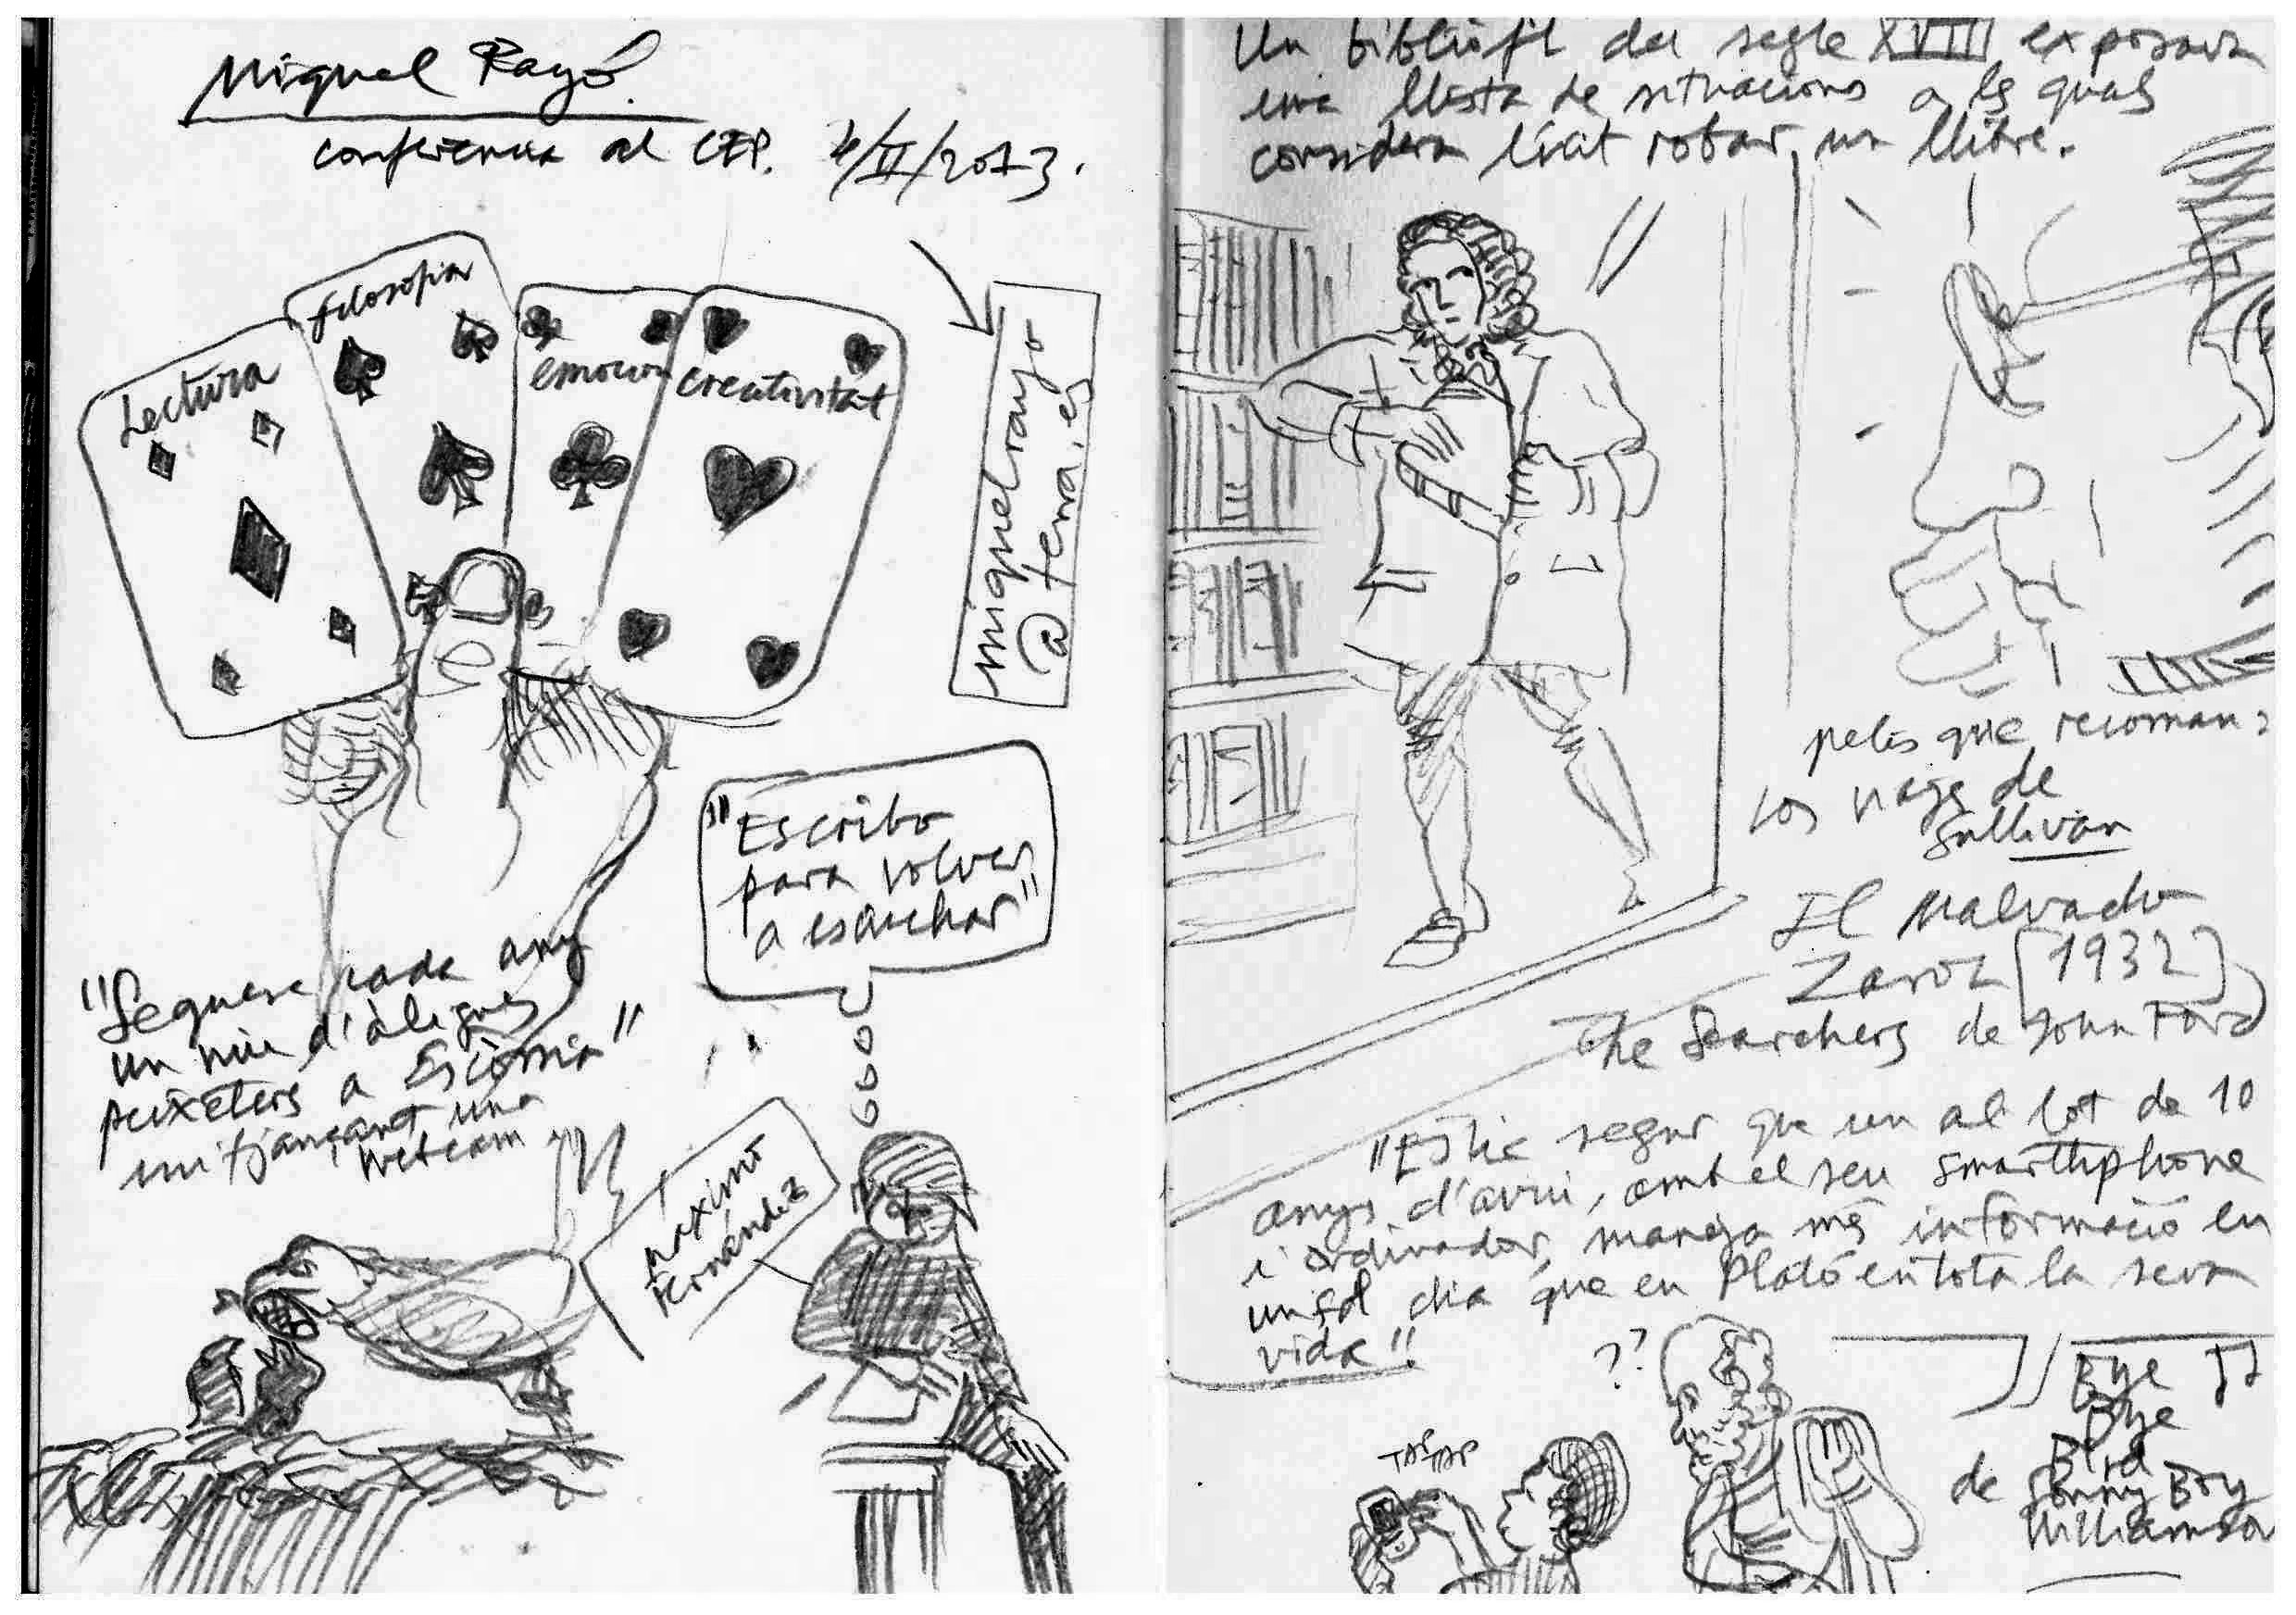 Miquel Rayó.
conferencia al CEP. 4/II/2013.
Lectura
filosofia
emoció
creativitat
miquelrayo
@terra.es
"Escribo
para volver
a escuchar"
"Segueix cada any
un niu d'àligues
peixeters a Escòssia"
mitjançant una
webcam
Máximo
Fernández
Un bibliòfil del segle XVIII exposava
una llista de situacions a les quals
considera lícit robar un llibre.
pelis que recoman:
Los viajes de
Sullivan
El Malvado
Zaroz [1932]
The Searchers de John Ford
"Estic segur que un al·lot de 10
anys d'avui, amb el seu smarthphone
i ordinador, maneja més informació en
un sol dia que en Plató en tota la seva
vida".
??
TAP TAP
Bye
Bye
Bird
de Sonny Boy
Williamson